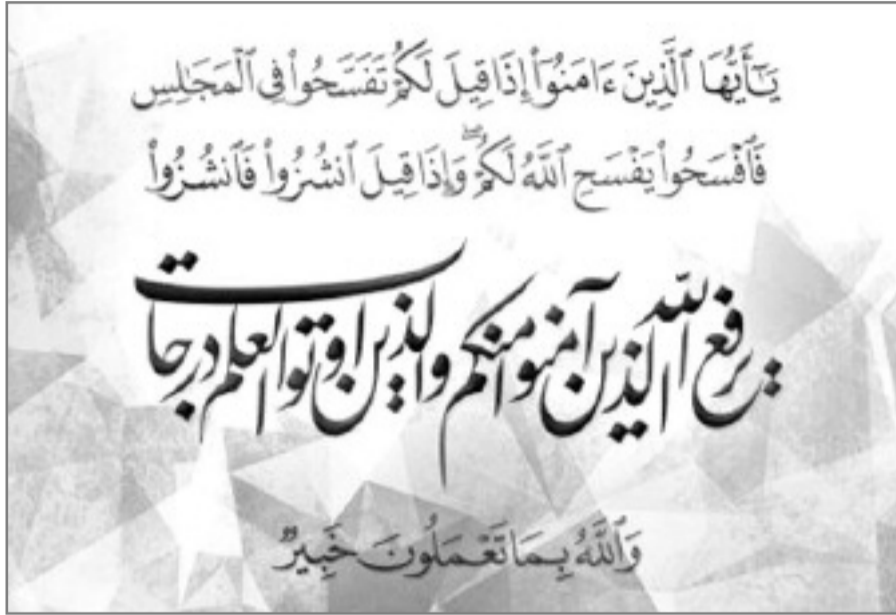 يَـٰٓأَيُّهَا ٱلَّذِينَ ءَامَنُوٓا۟ إِذَا قِيلَ لَكُمْ تَفَسَّحُوا۟ فِى ٱلْمَجَـٰلِسِ
فَٱفْسَحُوا۟ يَفْسَحِ ٱللَّهُ لَكُمْ ۖ وَإِذَا قِيلَ ٱنشُزُوا۟ فَٱنشُزُوا۟
يرفع الله الذين آمنوا منكم والذين اوتوا العلم درجات
وَٱللَّهُ بِمَا تَعْمَلُونَ خَبِيرٌ